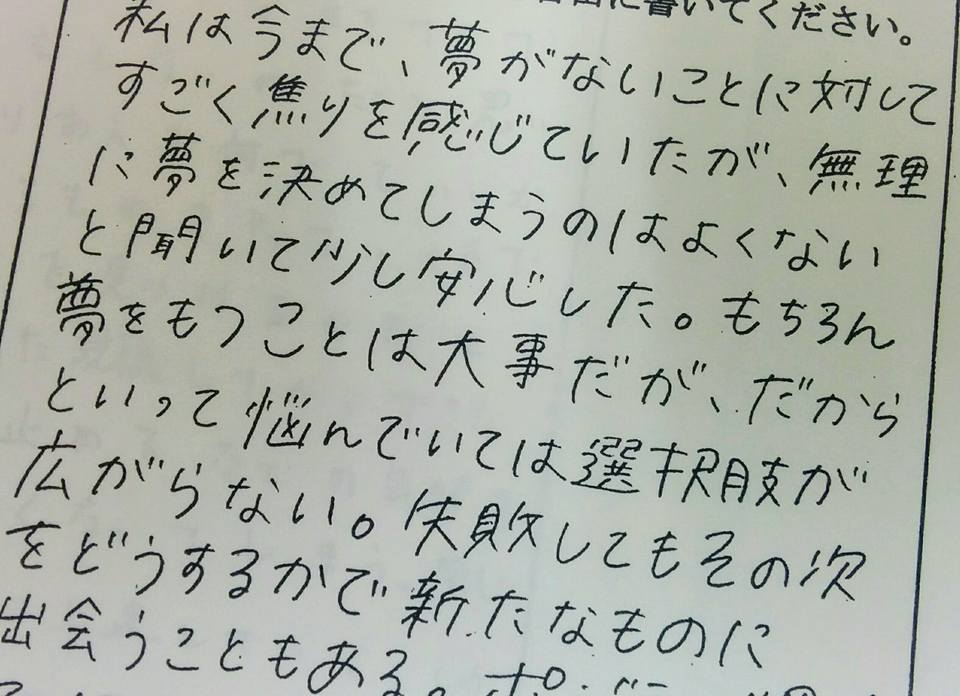 に書いてください。
私は今まで、夢がないことに対して
すごく焦りを感じていたが、無理
に夢を決めてしまうのはよくない
と聞いて少し安心した。もちろん
夢をもつことは大事だが、だから
といって悩んでいては選択肢が
広がらない。失敗してもその次
をどうするかで新たなものに
出会うこともある。